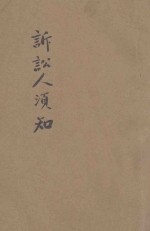 訴訟人須知